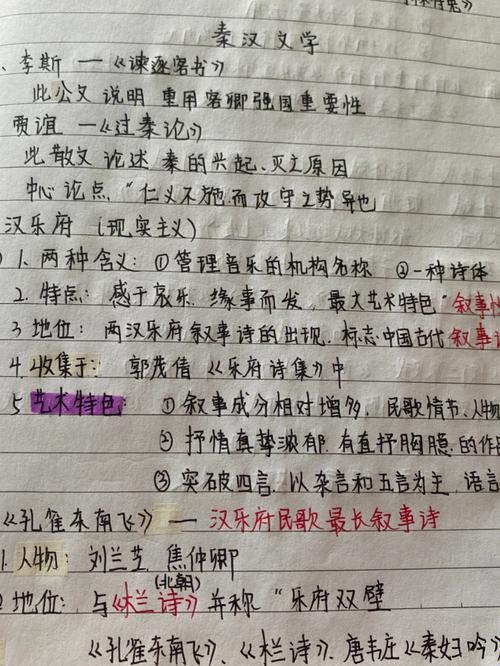 秦汉文学
、李斯 —《谏逐客书》
此公文说明 重用客卿强国重要性
贾谊 —《过秦论》
此散文论述 秦的兴起、灭亡原因
中心论点:“仁义不施而攻守之势异也
汉乐府 (现实主义)
1. 两种含义: ①管理音乐的机构名称 ②一种诗体
2. 特点: 感于哀乐. 缘事而发, 最大艺术特色“叙事性
3 地位: 两汉乐府叙事诗的出现. 标志中国古代叙事
4. 收集于: 郭茂倩《乐府诗集》中
5 艺术特色: ①叙事成分相对增多, 民歌情节、人物
② 抒情真挚浓郁. 有直抒胸臆. 的作
③ 突破四言. 以杂言和五言为主. 语言
《孔雀东南飞》— 汉乐府民歌最长叙事诗
1. 人物: 刘兰芝. 焦仲卿
(北朝)
2 地位: 与《木兰诗》并称“乐府双壁
《孔雀东南飞》、《木兰诗》. 唐韦庄《秦妇吟》